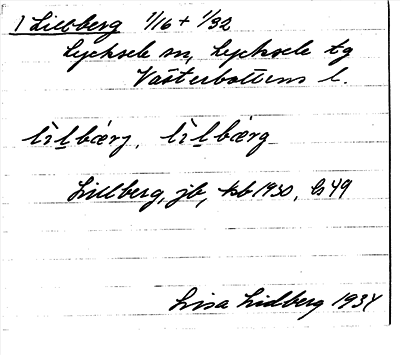 1 Lillberg 1/16 + 1/32
Lycksele sn, Lycksele tg
Västerbottens l.
lìlbærj, lìlbærg
Lillberg, jb, tsb 1930, ls 49
Lisa Lidberg 1934